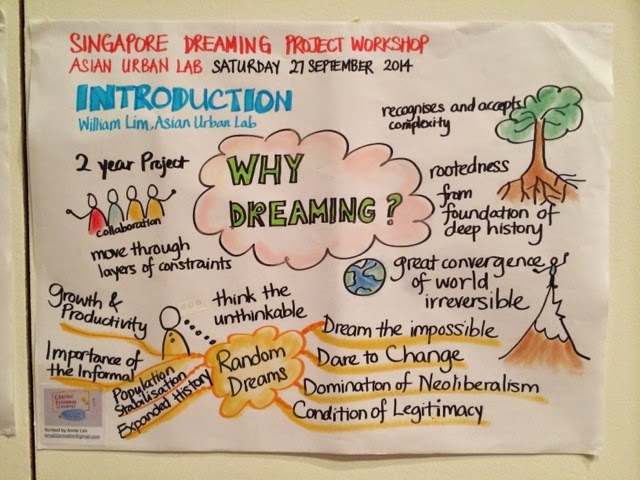 SINGAPORE DREAMING PROJECT WORKSHOP
ASIAN URBAN LAB SATURDAY 27 SEPTEMBER 2014
INTRODUCTION
William Lim, Asian Urban Lab
recognises and accepts
complexity
2 year Project
collaboration
move through
layers of constraints
WHY
DREAMING?
rootedness
from
foundation of
deep history
great convergence
of world
irreversible
Growth &
Productivity
think the
unthinkable
Importance of
the Informal
Population
Stabilisation
Expanded History
Random
Dreams
Dream the impossible
Dare to Change
Domination of Neoliberalism
Condition of Legitimacy
Scribed by